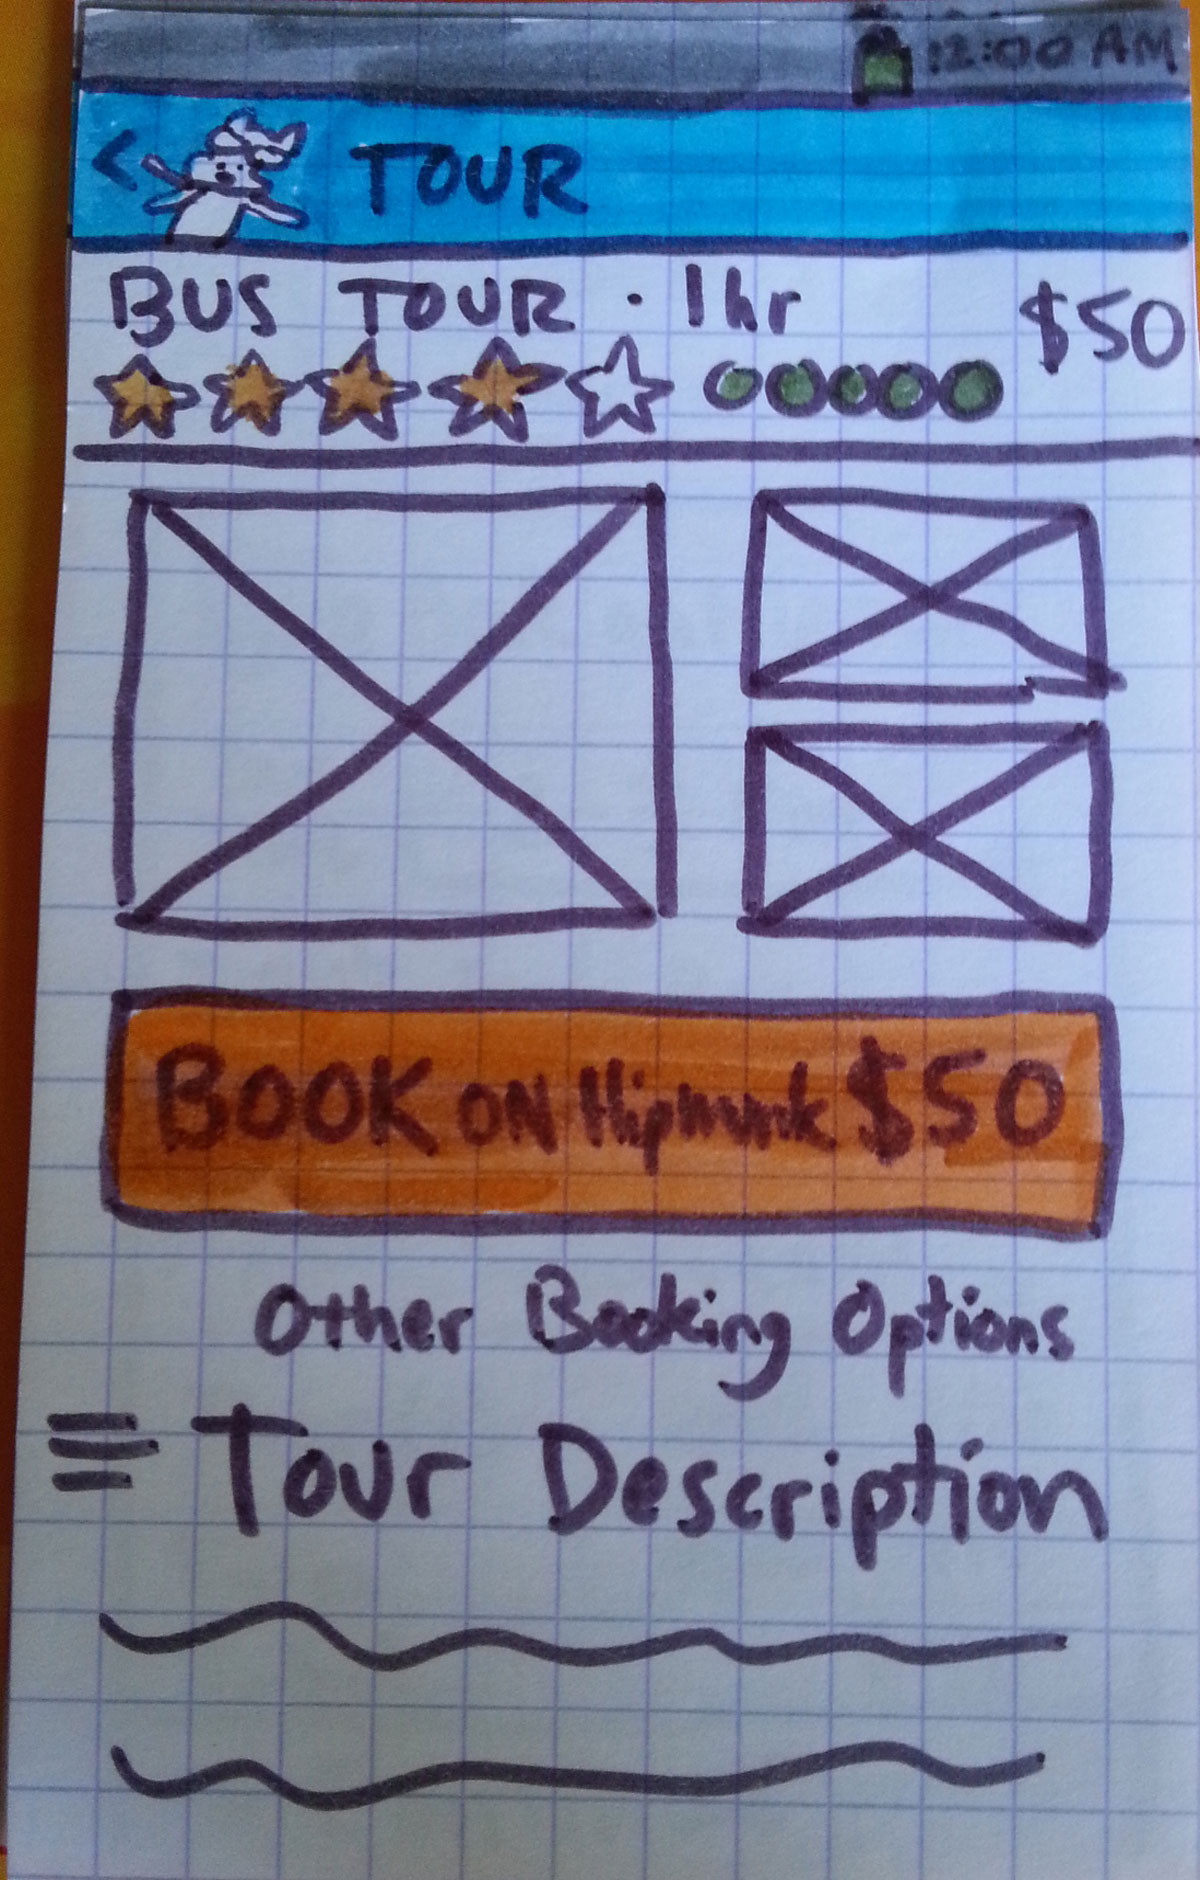 12:00 AM
< TOUR
BUS TOUR · 1hr $50
BOOK ON Hipmunk $50
Other Booking Options
Tour Description